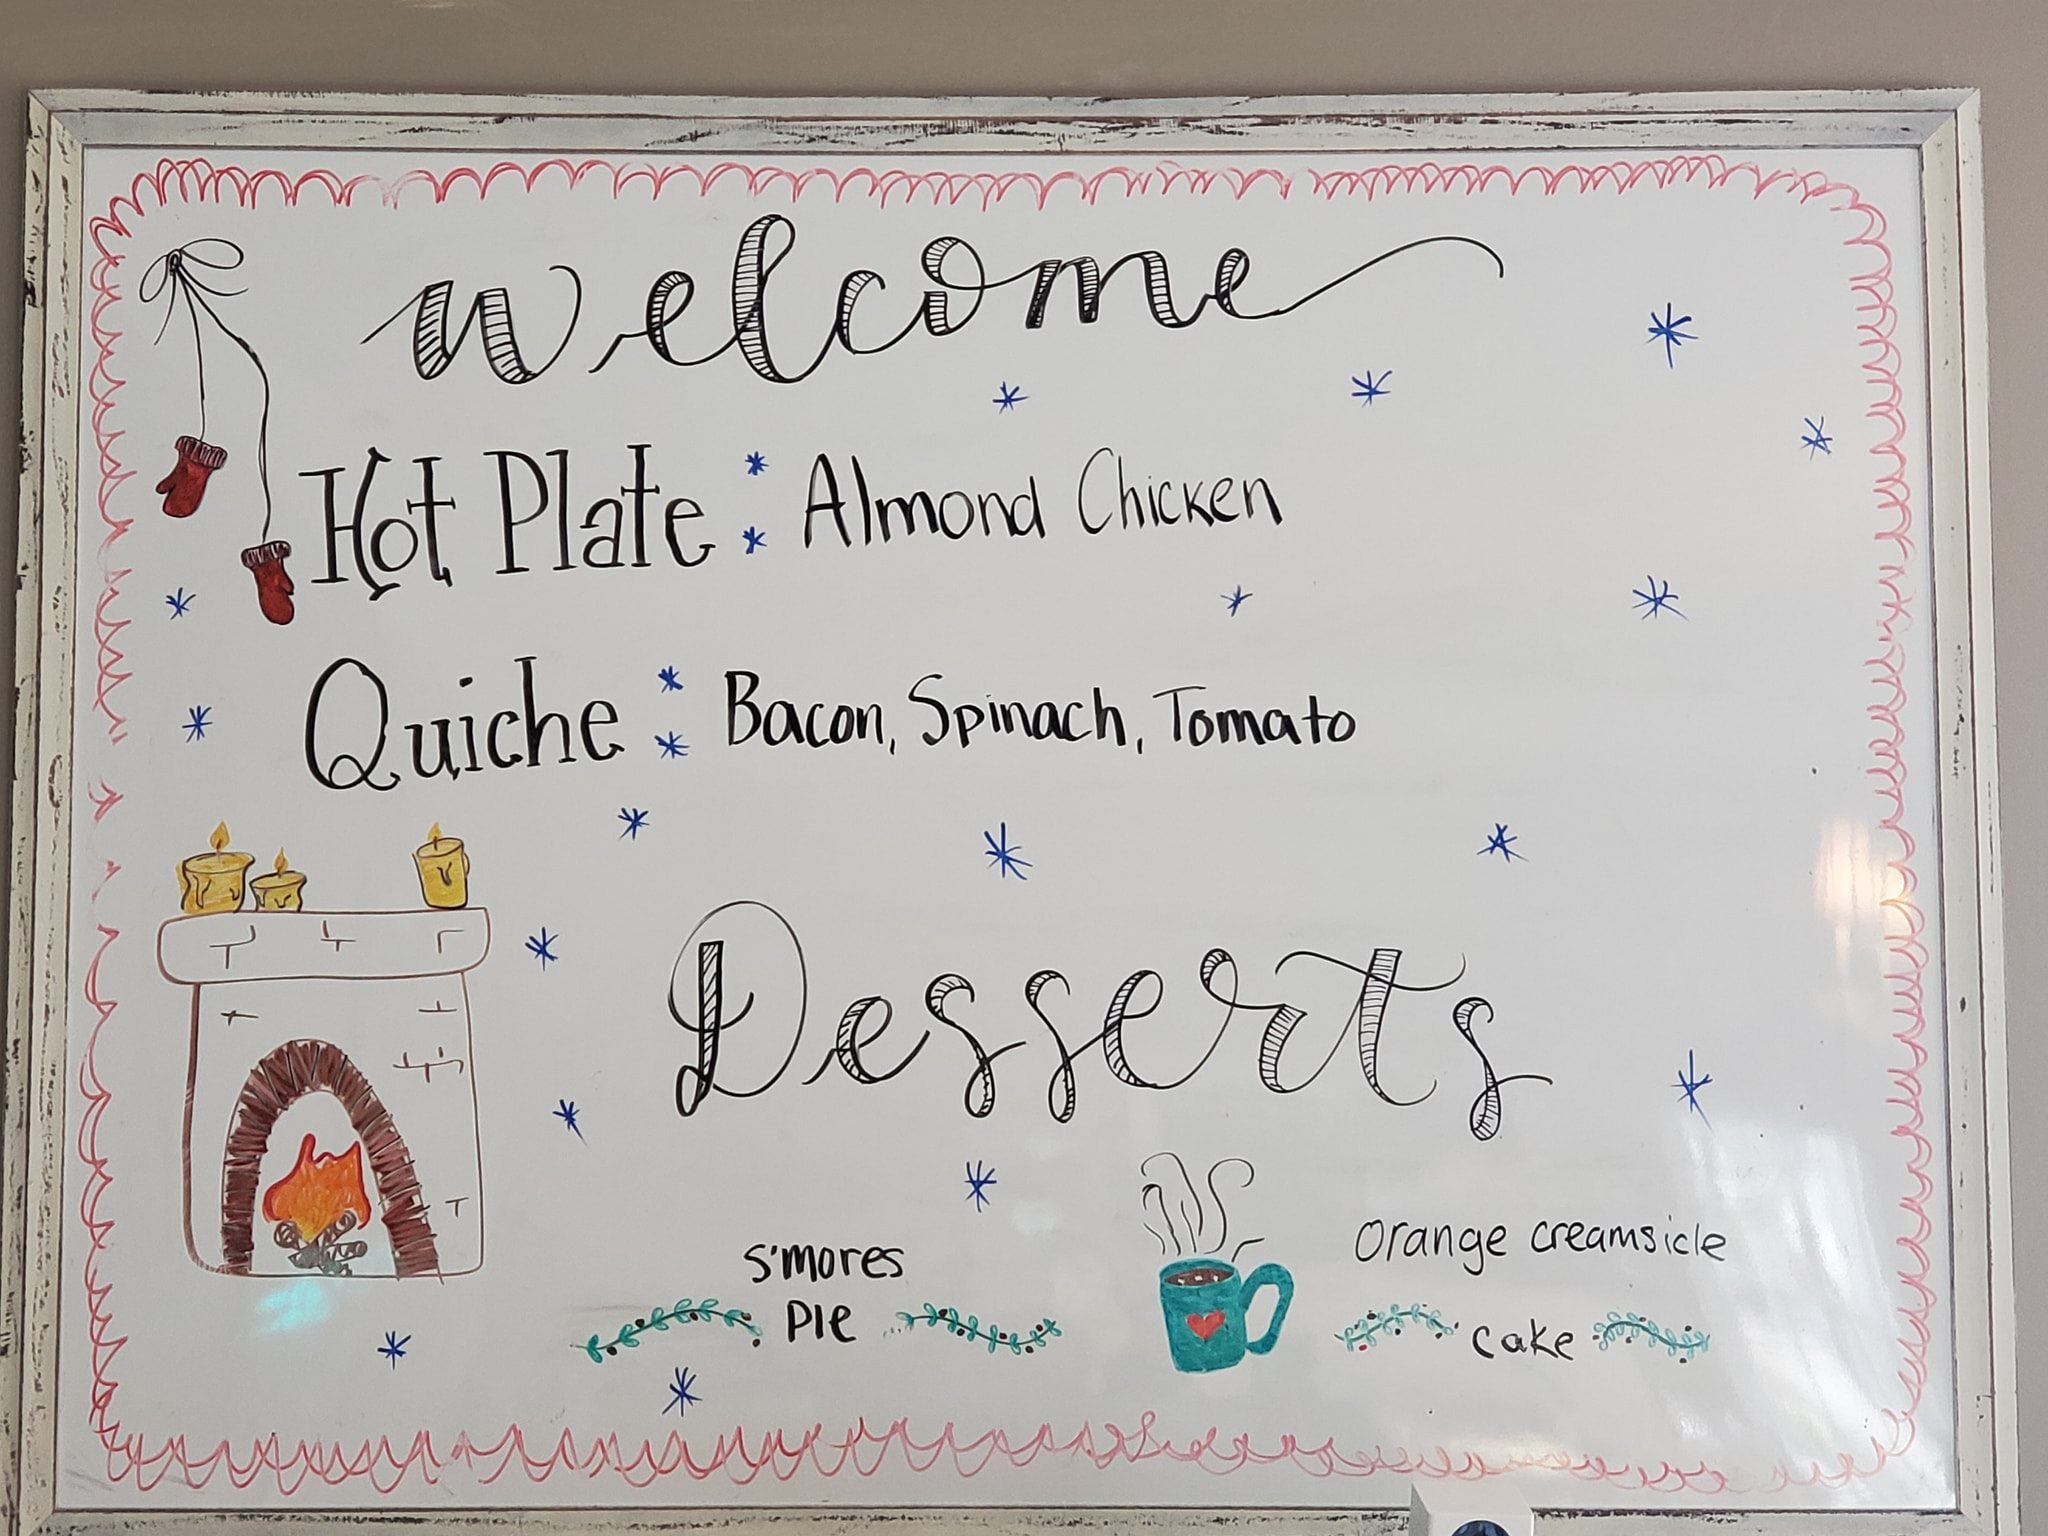 Welcome
Hot Plate : Almond Chicken
Quiche : Bacon, Spinach, Tomato
Desserts
s'mores
pie
orange creamsicle
cake